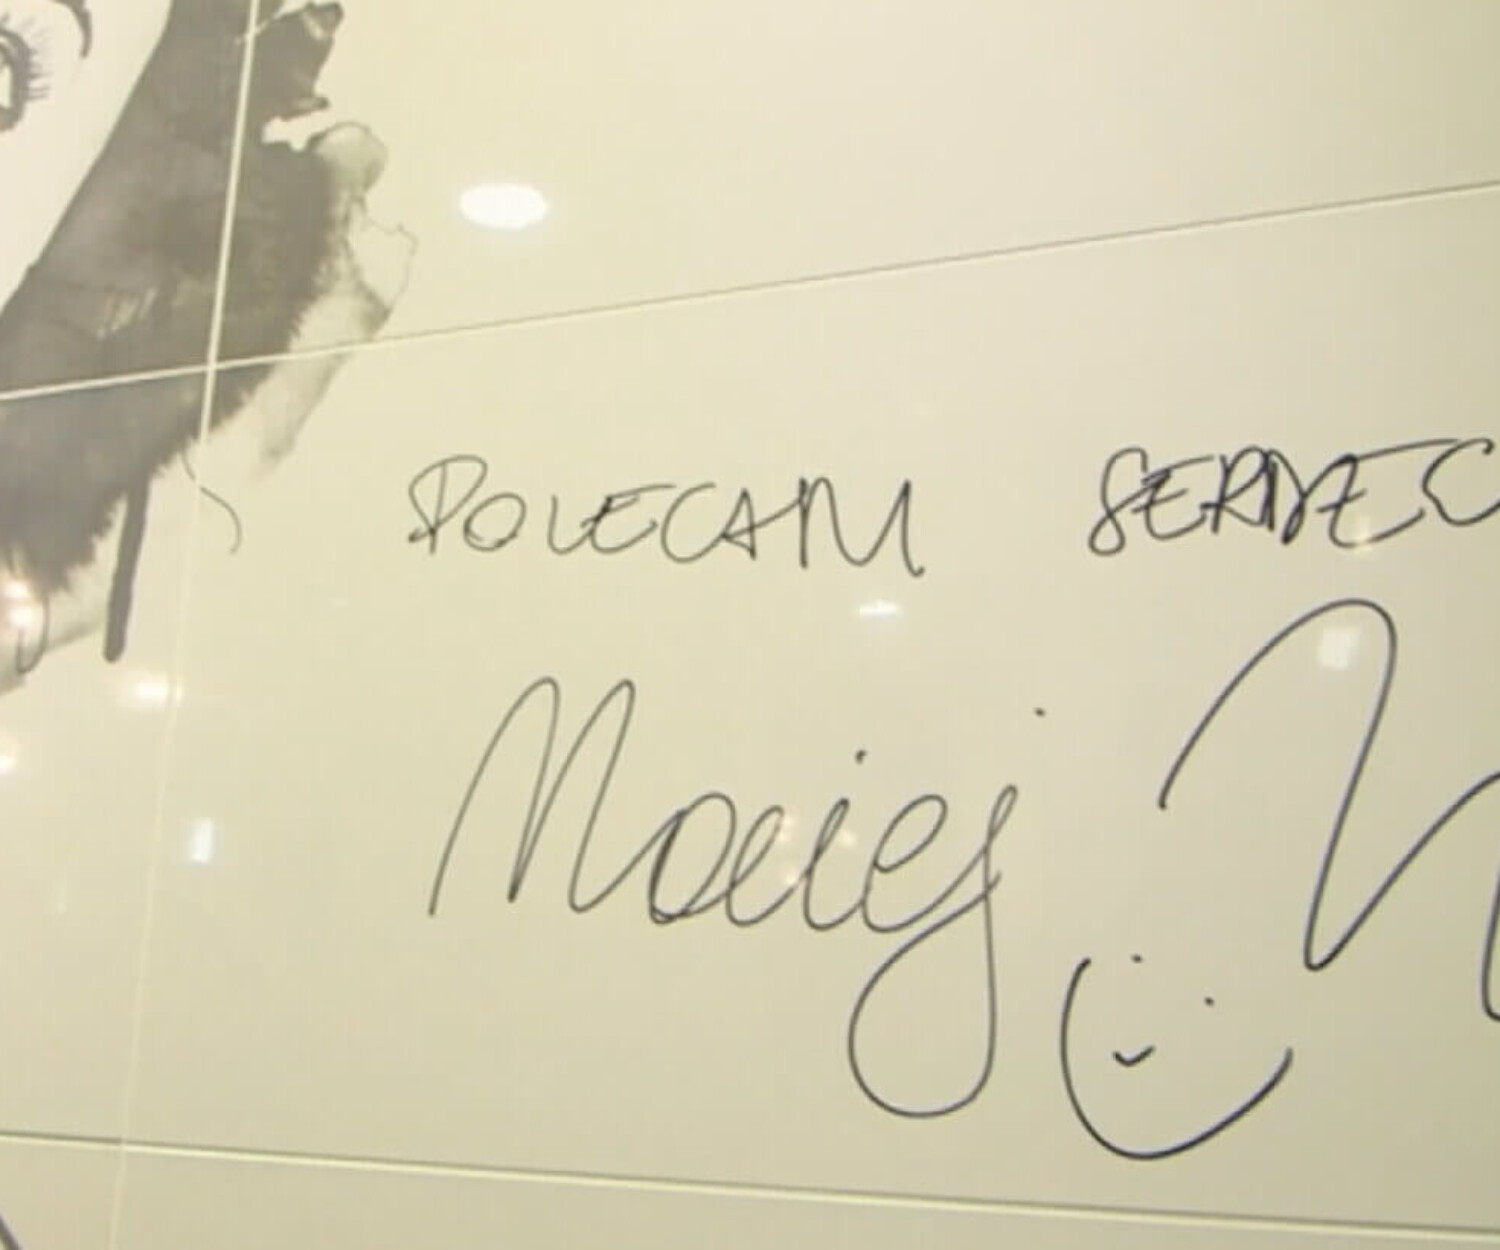 POLECAM SERDEC
Maciej